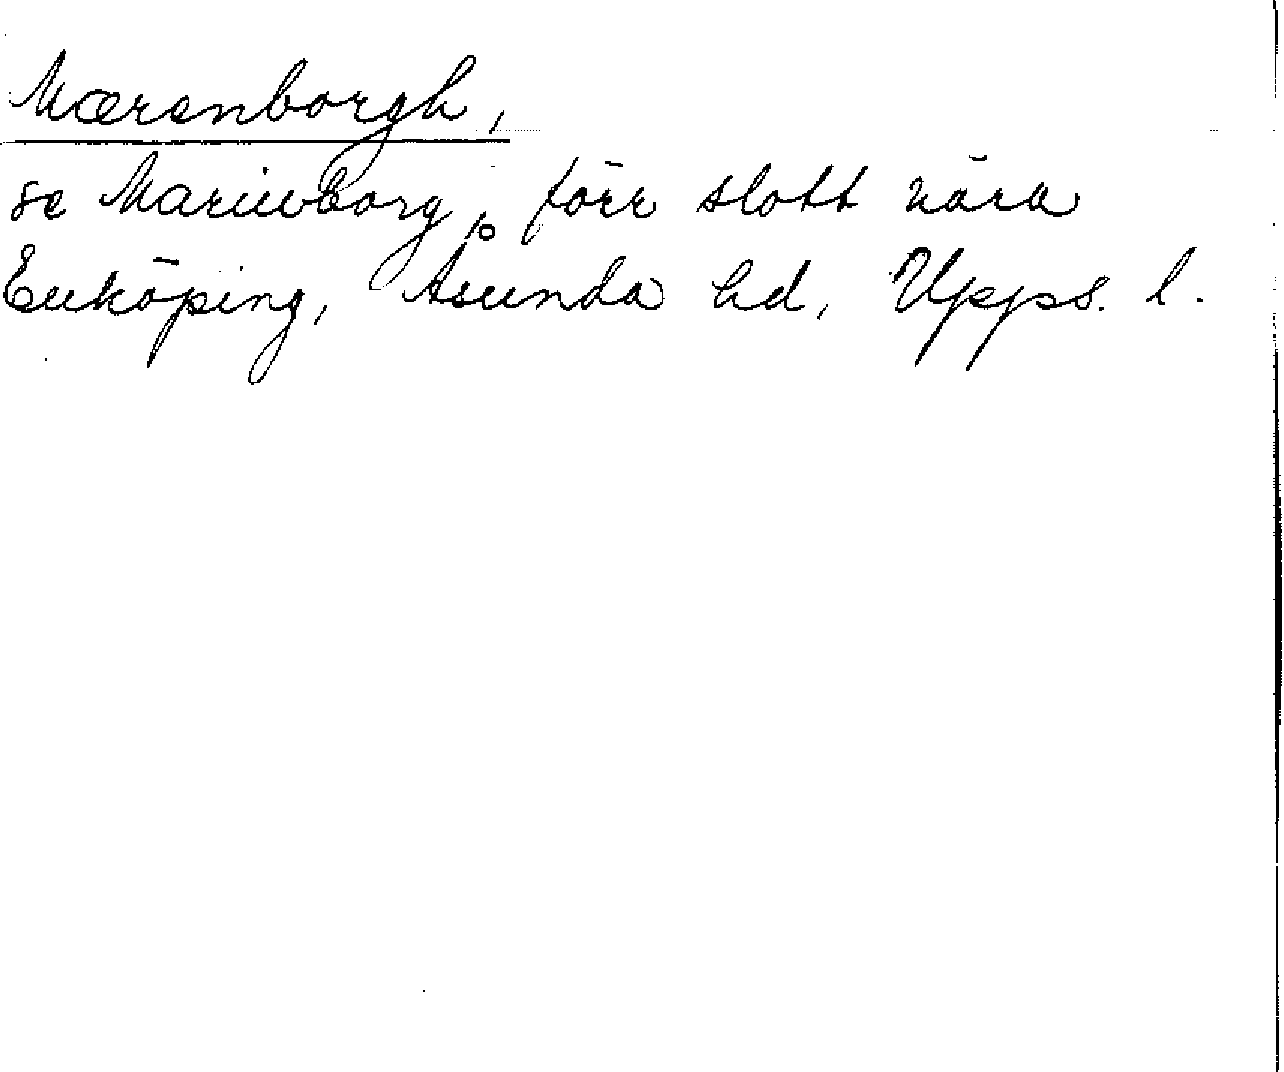 Mærenborgh,
se Marieborg, förr slott nära
Enköping, Åsunda hd, Upps. l.